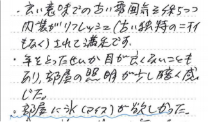 ・古い意味での古い雰囲気を保ちつつ
内装がリフレッシュ(古い独特のニオイ
もなく)されて満足です。
・年をとったせいか目が良くないこともあ
り、部屋の照明が少し暗く感
じた。
・部屋に氷(アイス)が欲しかった。